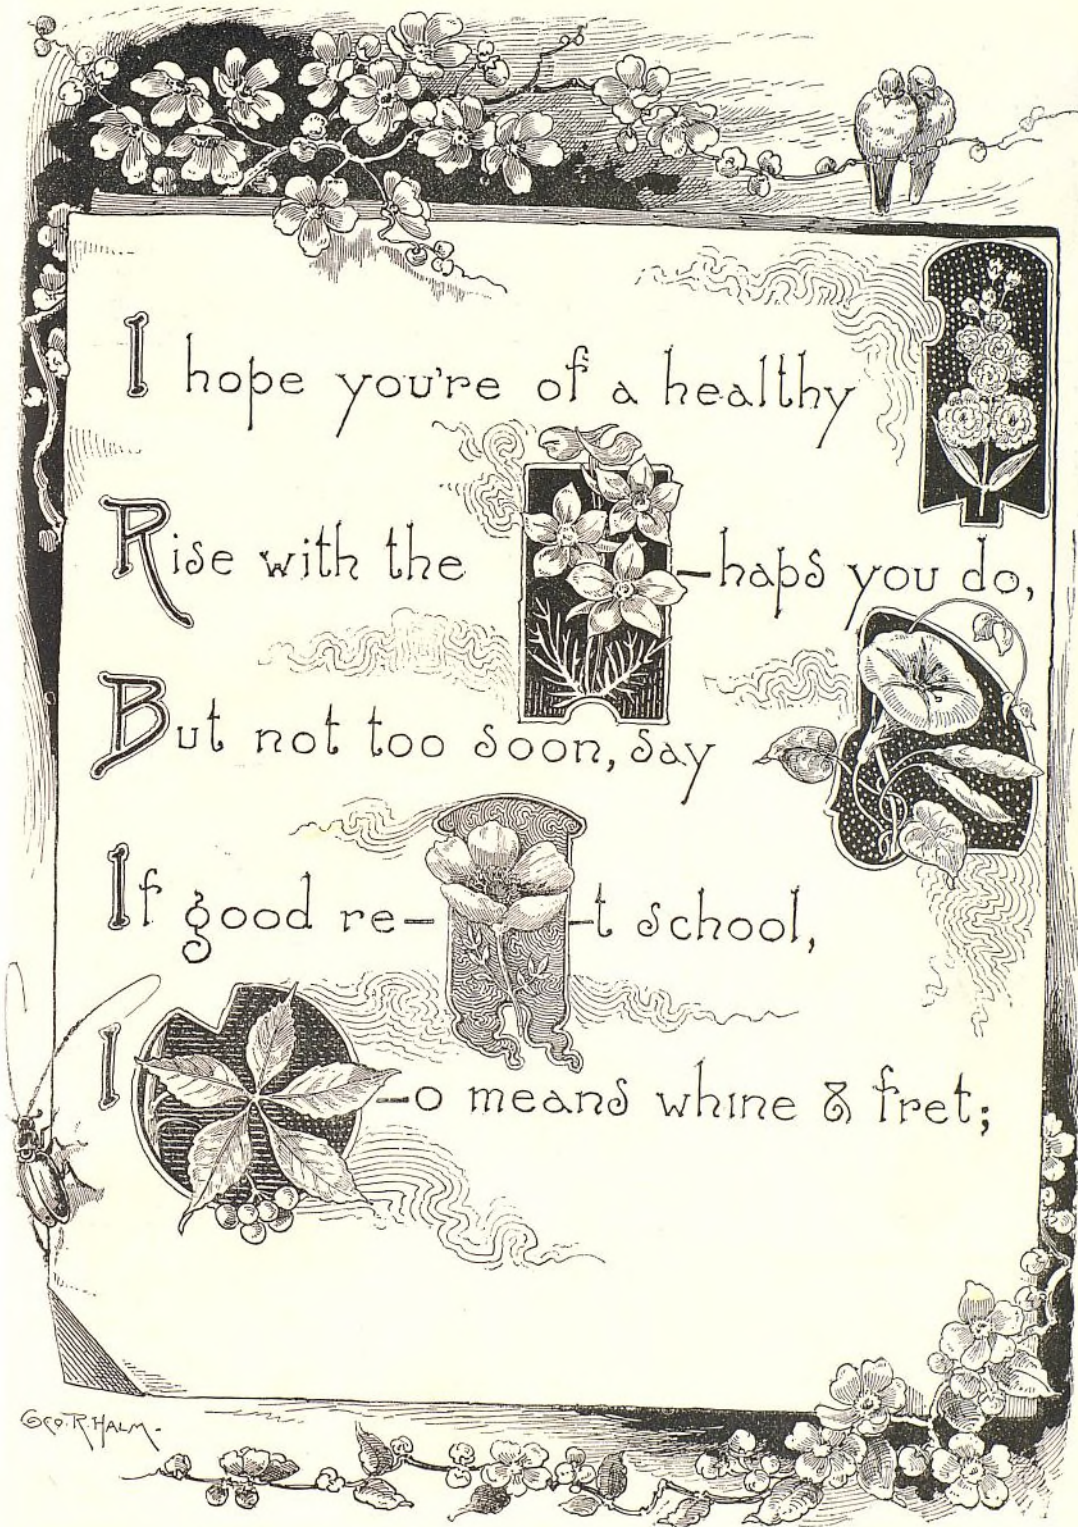 I hope you're of a healthy
Rise with the -haps you do,
But not too soon, say
If good re- -t school,
I -o means whine & fret;
GEO. R. HALM.